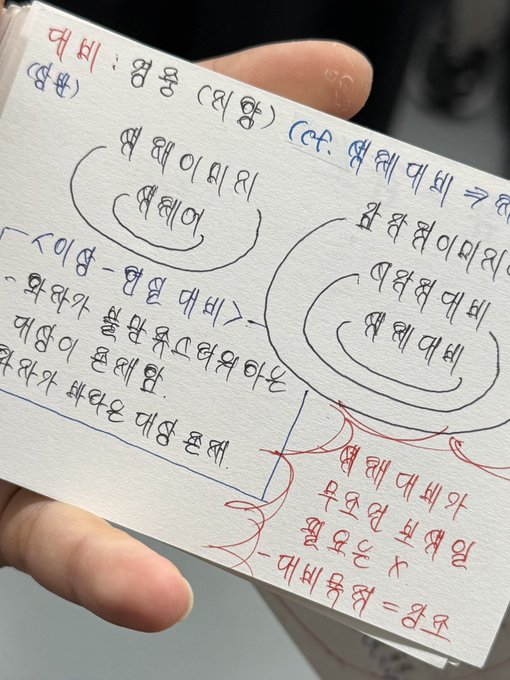 대비 : 영웅 (지향) (cf. 색채대비 ⇒
(상반)
색채이미지
색채어
감각적이미지
시각적대비
색채대비
<이상-현실 대비>
- 화자가 불만족스러워하는
대상이 존재함.
화자가 바라는 대상 존재.
색채대비가
무조건 보색일
필요는 X
- 대비목적 = 강조